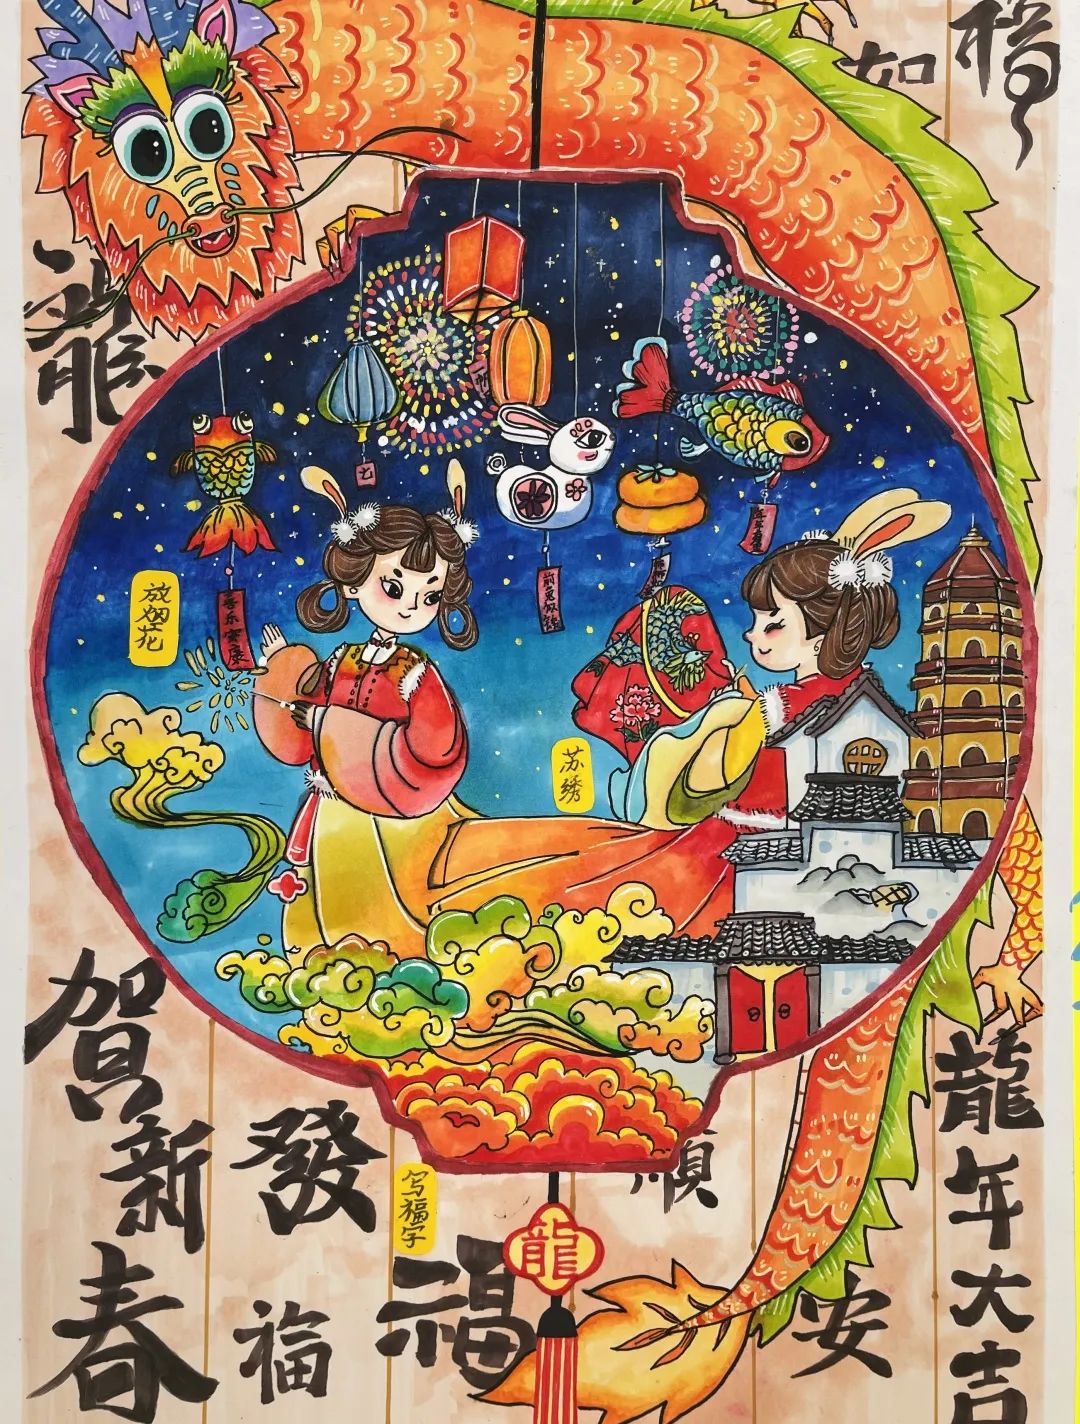 如
龍
放烟花
喜乐安康
前兔似锦
苏绣
賀新春
發
福
写福字
福
龍
順
安
龍年大吉